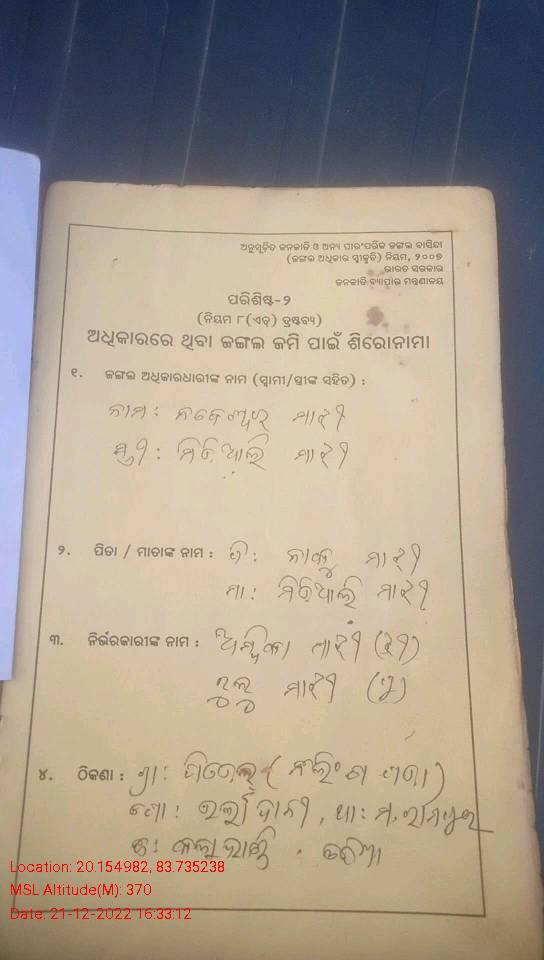 ଅନୁସୂଚିତ ଜନଜାତି ଓ ଅନ୍ୟ ପାରଂପରିକ ଜଙ୍ଗଲ ବାସିନ୍ଦା
(ଜଙ୍ଗଲ ଅଧିକାର ସ୍ୱୀକୃତି) ନିୟମ, ୨୦୦୭
ଭାରତ ସରକାର
ଜନଜାତି ବ୍ୟାପାର ମନ୍ତ୍ରଣାଳୟ
ପରିଶିଷ୍ଟ-୨
(ନିୟମ ୮(ଏଚ୍) ଦ୍ରଷ୍ଟବ୍ୟ)
ଅଧିକାରରେ ଥିବା ଜଙ୍ଗଲ ଜମି ପାଇଁ ଶିରୋନାମା
୧. ଜଙ୍ଗଲ ଅଧିକାରଧାରୀଙ୍କ ନାମ (ସ୍ୱାମୀ/ସ୍ତ୍ରୀଙ୍କ ସହିତ) :
ନାମ : ମାଝୀ
ସ୍ତ୍ରୀ : ମାଝୀ
୨. ପିତା / ମାତାଙ୍କ ନାମ : ପି : ମାଝୀ
ମା : ମାଝୀ
୩. ନିର୍ଭରକାରୀଙ୍କ ନାମ : ଅମ୍ବିକା ମାଝୀ (ଝୀ)
ମାଝୀ (ପୁ)
୪. ଠିକଣା : ଗ୍ରା :
ପୋ : , ଥା : ମ. ରାମପୁର
ଜି : କଳାହାଣ୍ଡି . ଓଡ଼ିଶା
Location: 20.154982, 83.735238
MSL Altitude(M): 370
Date: 21-12-2022 16:33:12